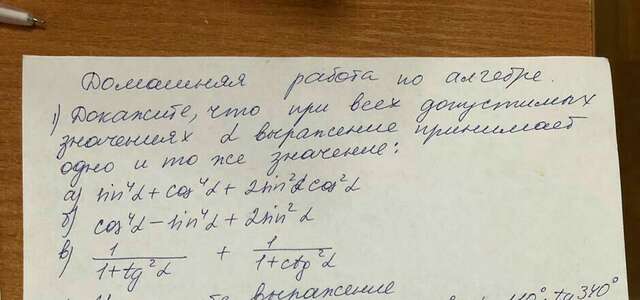 Домашняя работа по алгебре.
1) Докажите, что при всех допустимых
значениях α выражение принимает
одно и то же значение:
а) sin⁴α + cos⁴α + 2sin²α cos²α
б) cos⁴α - sin⁴α + 2sin²α
в) 1/(1+tg²α) + 1/(1+ctg²α)
выражение
10° · tg 340°